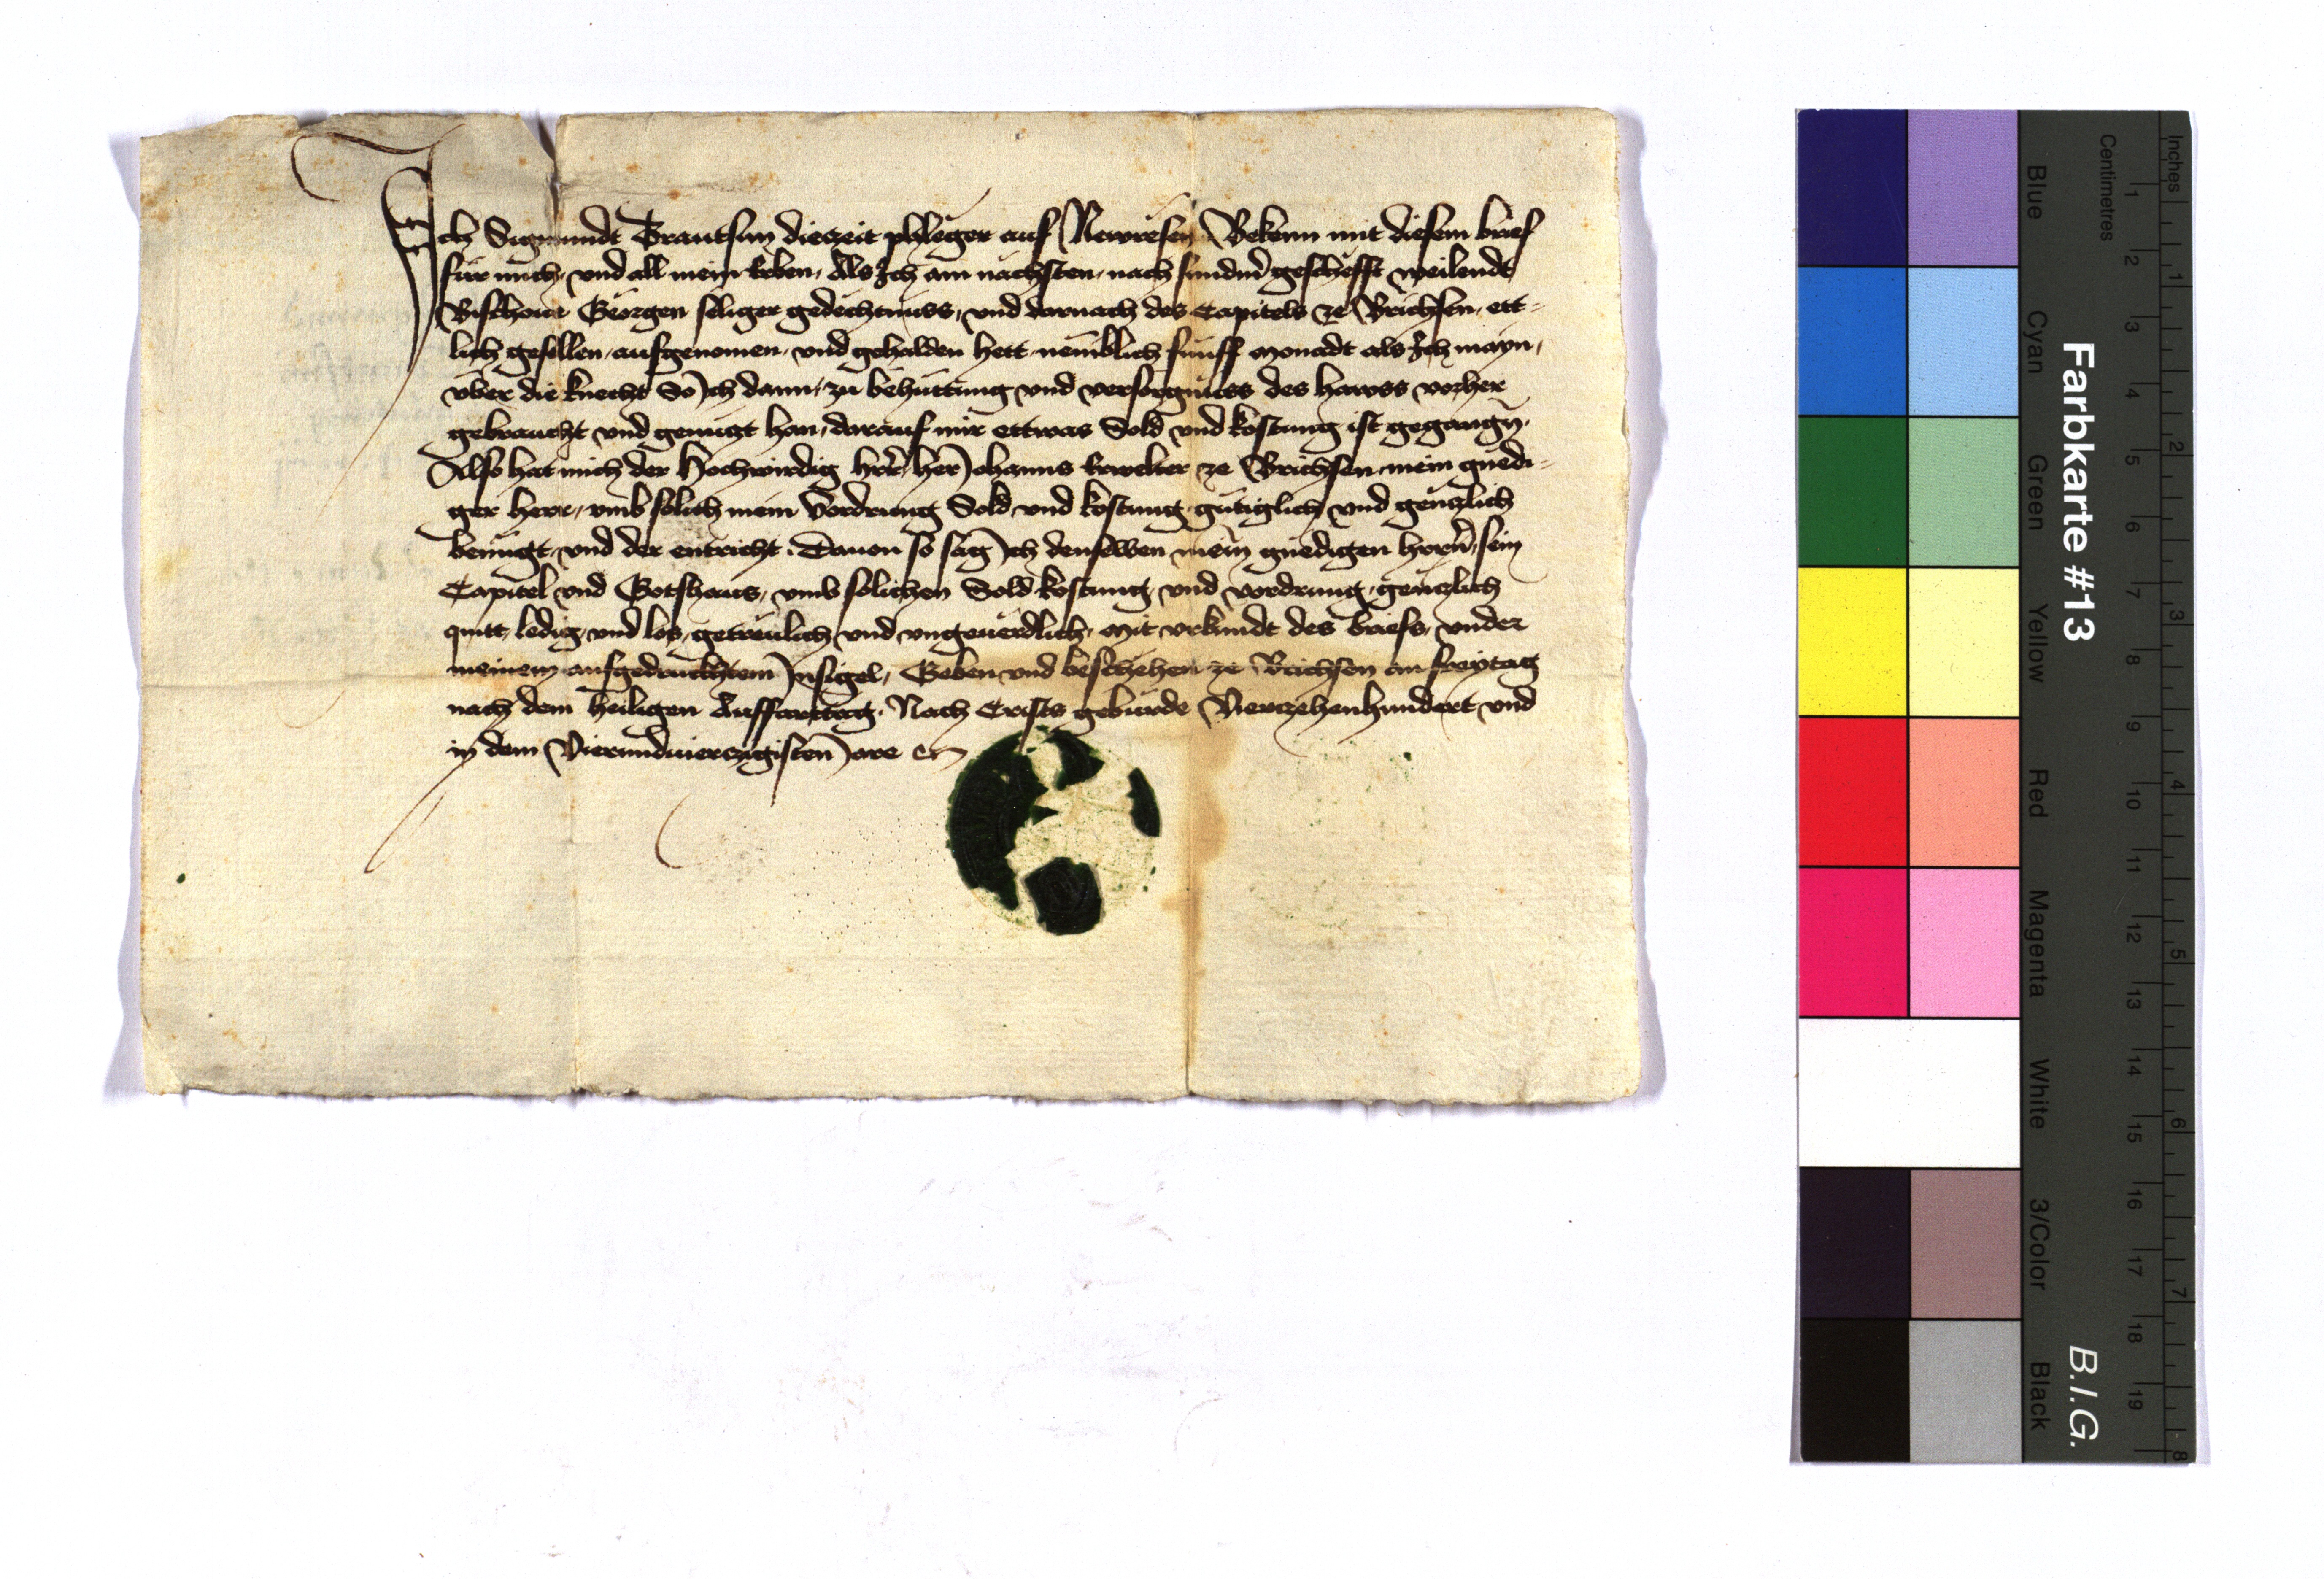 Ich Sigmundt Trautsun diezeit phleger auf Newresen Bekenn mit diesem brief
für mich, und all mein Erben, Als Ich am nachsten, nach sundm̄ geschefft weilendt
Bischoue Georgen seliger gedechtnuss, und darnach des Capitels ze Brichsen, ett-
lich gesellen, aufgenomen, und gehalden hett, nemblich fünff monadt als Ich mayn,
über die knecht So Ich dann, zu behuttung und versorgnuss des hawss vorher
gebraucht und genuczt han, darauf mir ettwas Sold und kostung ist gegangn̄.
Also hat mich der Hochwirdig hr̄r, her Johanns Erwelter ze Brichsen, mein gnedi-
ger herr, umb solich mein Vordrung Sold, und kostung, gütiglich und genczlich
benügt, und der entricht. Dauon so sag Ich denselben mein̄ gnedigen herrn̄, sein
Capitel und Gotshaus, umb solichen Sold kostung und vordrung, genczlich
quitt, ledig, und los, getreulich, und ungeuerdlich. Mit urkundt des briefs, under
meinem aufgedruckhtem Insigel, Geben und beschehen ze Brichsen am freytag
nach dem heiligen Auffarttag. Nach Crists geburde Vierczehenhundert und
in dem Vierundvierczigisten Jare
Farbkarte #13
B.I.G.
Blue
Cyan
Green
Yellow
Red
Magenta
White
3/Color
Black
Centimetres
1 2 3 4 5 6 7 8 9 10 11 12 13 14 15 16 17 18 19
Inches
1 2 3 4 5 6 7 8